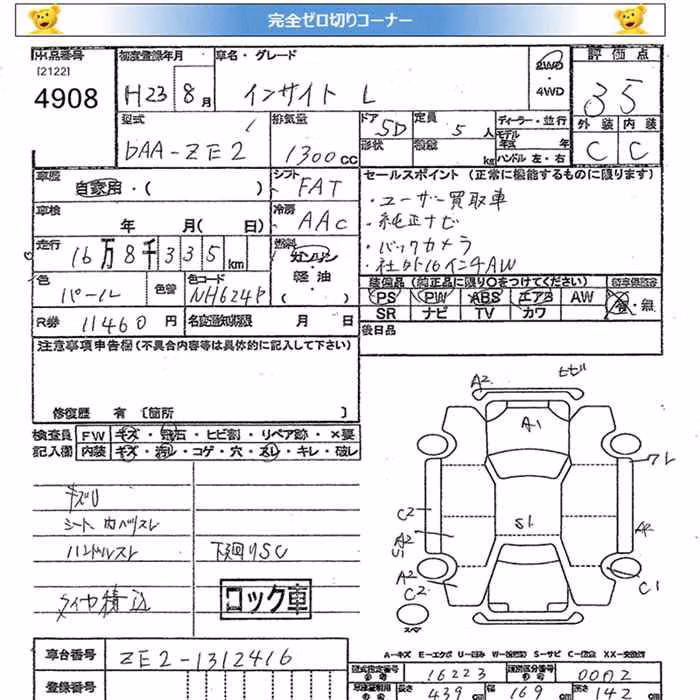 完全ゼロ切りコーナー
出品番号
[2122]
4908
初度登録年月
H23 8月
車名・グレード
インサイト L
2WD
4WD
評価点
3.5
外装 内装
C C
型式
DAA-ZE2
排気量
1300cc
ドア 5D
形状
定員 5人
積載 kg
ディーラー・並行
モデル年式 年
ハンドル 左・右
車歴
自家用・( )
シフト
FAT
セールスポイント (正常に機能するものに限ります)
・ユーザー買取車
・純正ナビ
・バックカメラ
・社外16インチAW
車検
年 月( 日)
冷房
AAC
走行
16万8千335km
燃料
ガソリン
軽油
( )
色
パール
色替
色コード
NH624P
装備品 (純正品に限り○をつけてください)
PS PW ABS エアB AW
SR ナビ TV カワ
有・無
R券 11460円
名変通知期限 月 日
後日品
注意事項申告欄(不具合内容等は具体的に記入して下さい)
修復歴 有 〔箇所 〕
検査員
記入欄
FW キズ・飛石・ヒビ割・リペア跡・×要
内装 キズ・汚レ・コゲ・穴・スレ・キレ・破レ
キズU
シート内ヘリスレ
ハンドルスレ
下廻りSC
タイヤ積込
ロック車
A2
ヒビ
A1
ワレ
C2
S1
A2
S1
A2
A2
C2
C1
スペア
A-キズ E-エクボ U-凹み W-補修跡 S-サビ C-腐食 XX-交換済
車台番号 ZE2-1312416
登録番号
型式指定番号 16223
類別区分番号 0002
長さ 439cm 169cm 142cm